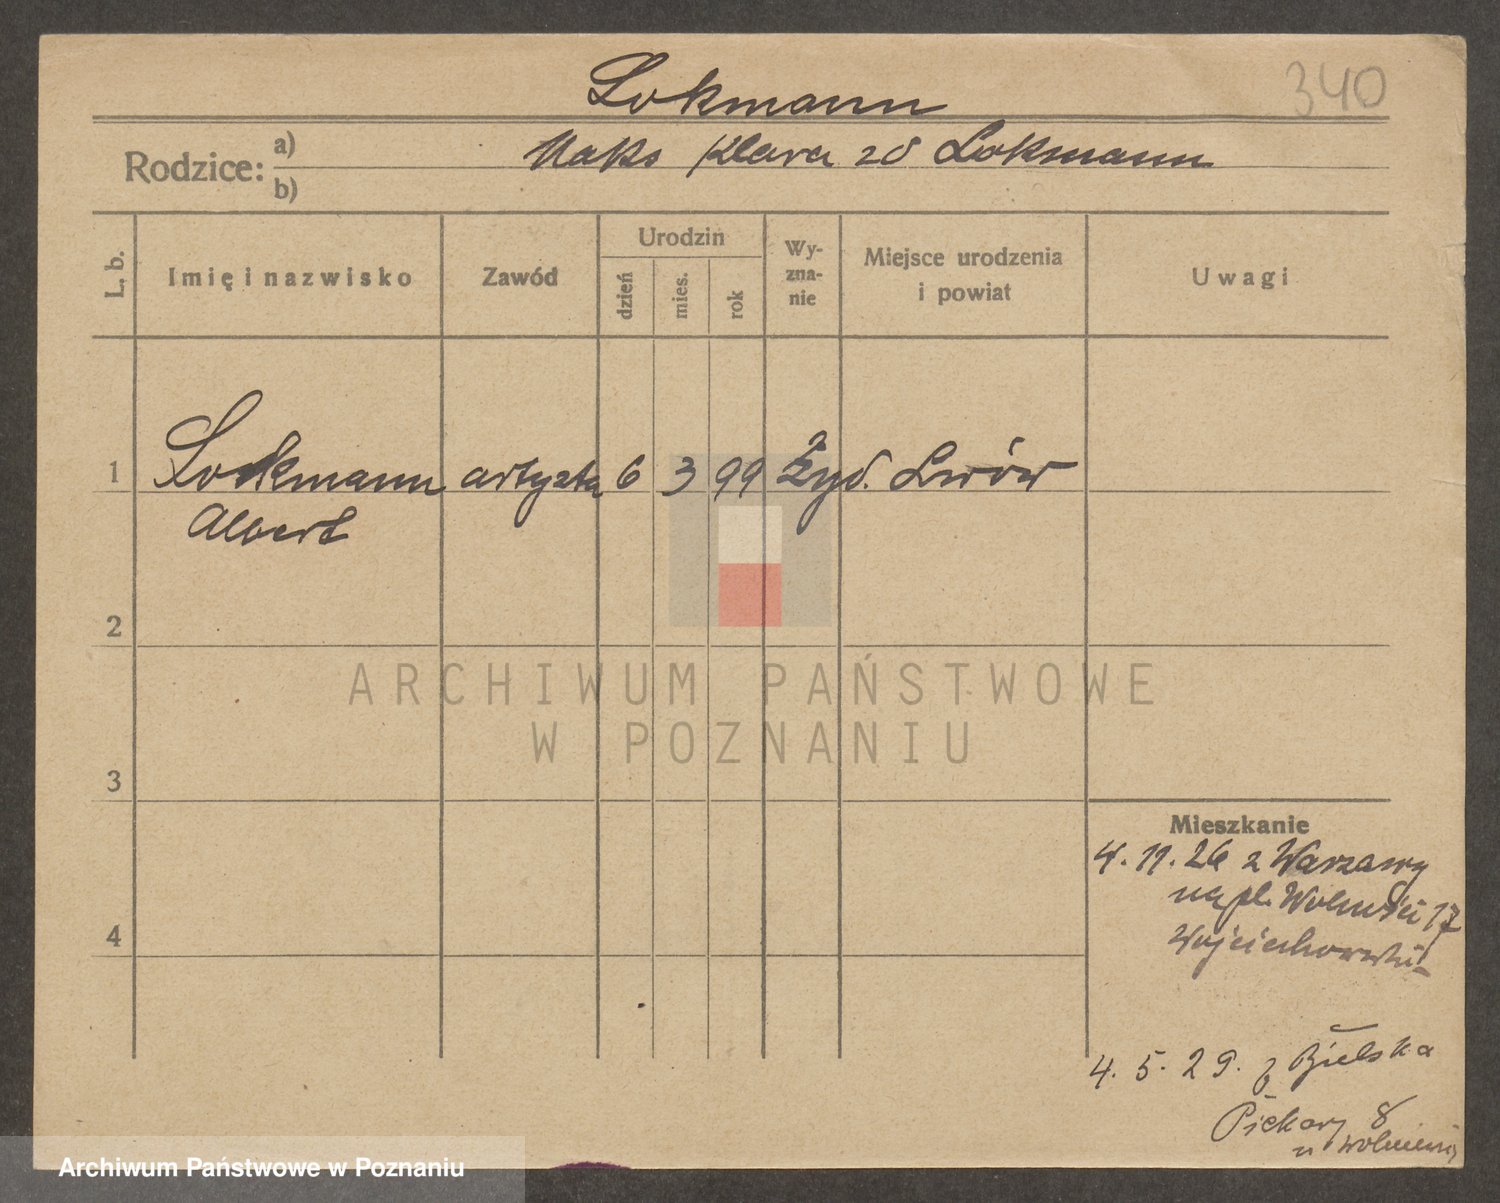 Lokmann
340
Rodzice: a)
b)
Maks Klara zd Lokmann
L. b.
Imię i nazwisko
Zawód
Urodzin
dzień
mies.
rok
Wy-
zna-
nie
Miejsce urodzenia
i powiat
Uwagi
1 Lockmann artysta 6 3 99 Żyd. Lwów
Albert
2
3
4
ARCHIWUM PAŃSTWOWE
W POZNANIU
Mieszkanie
4. 11. 26 z Warszawy
na pl. Wolności 17
Wojciechowski
4. 5. 29. z Bielska
Piekary 8
u
Archiwum Państwowe w Poznaniu